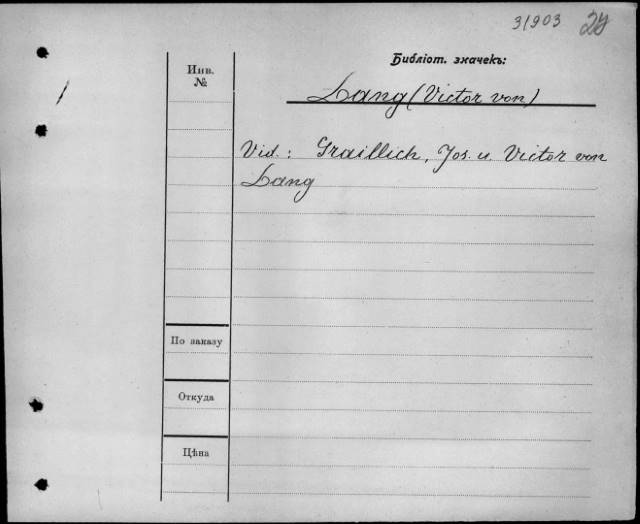 31903 24
Библіот. значекъ:
Инв.
№
Lang (Victor von)
Vid.: Graillich, Jos. u. Victor von
Lang
По заказу
Откуда
Цѣна